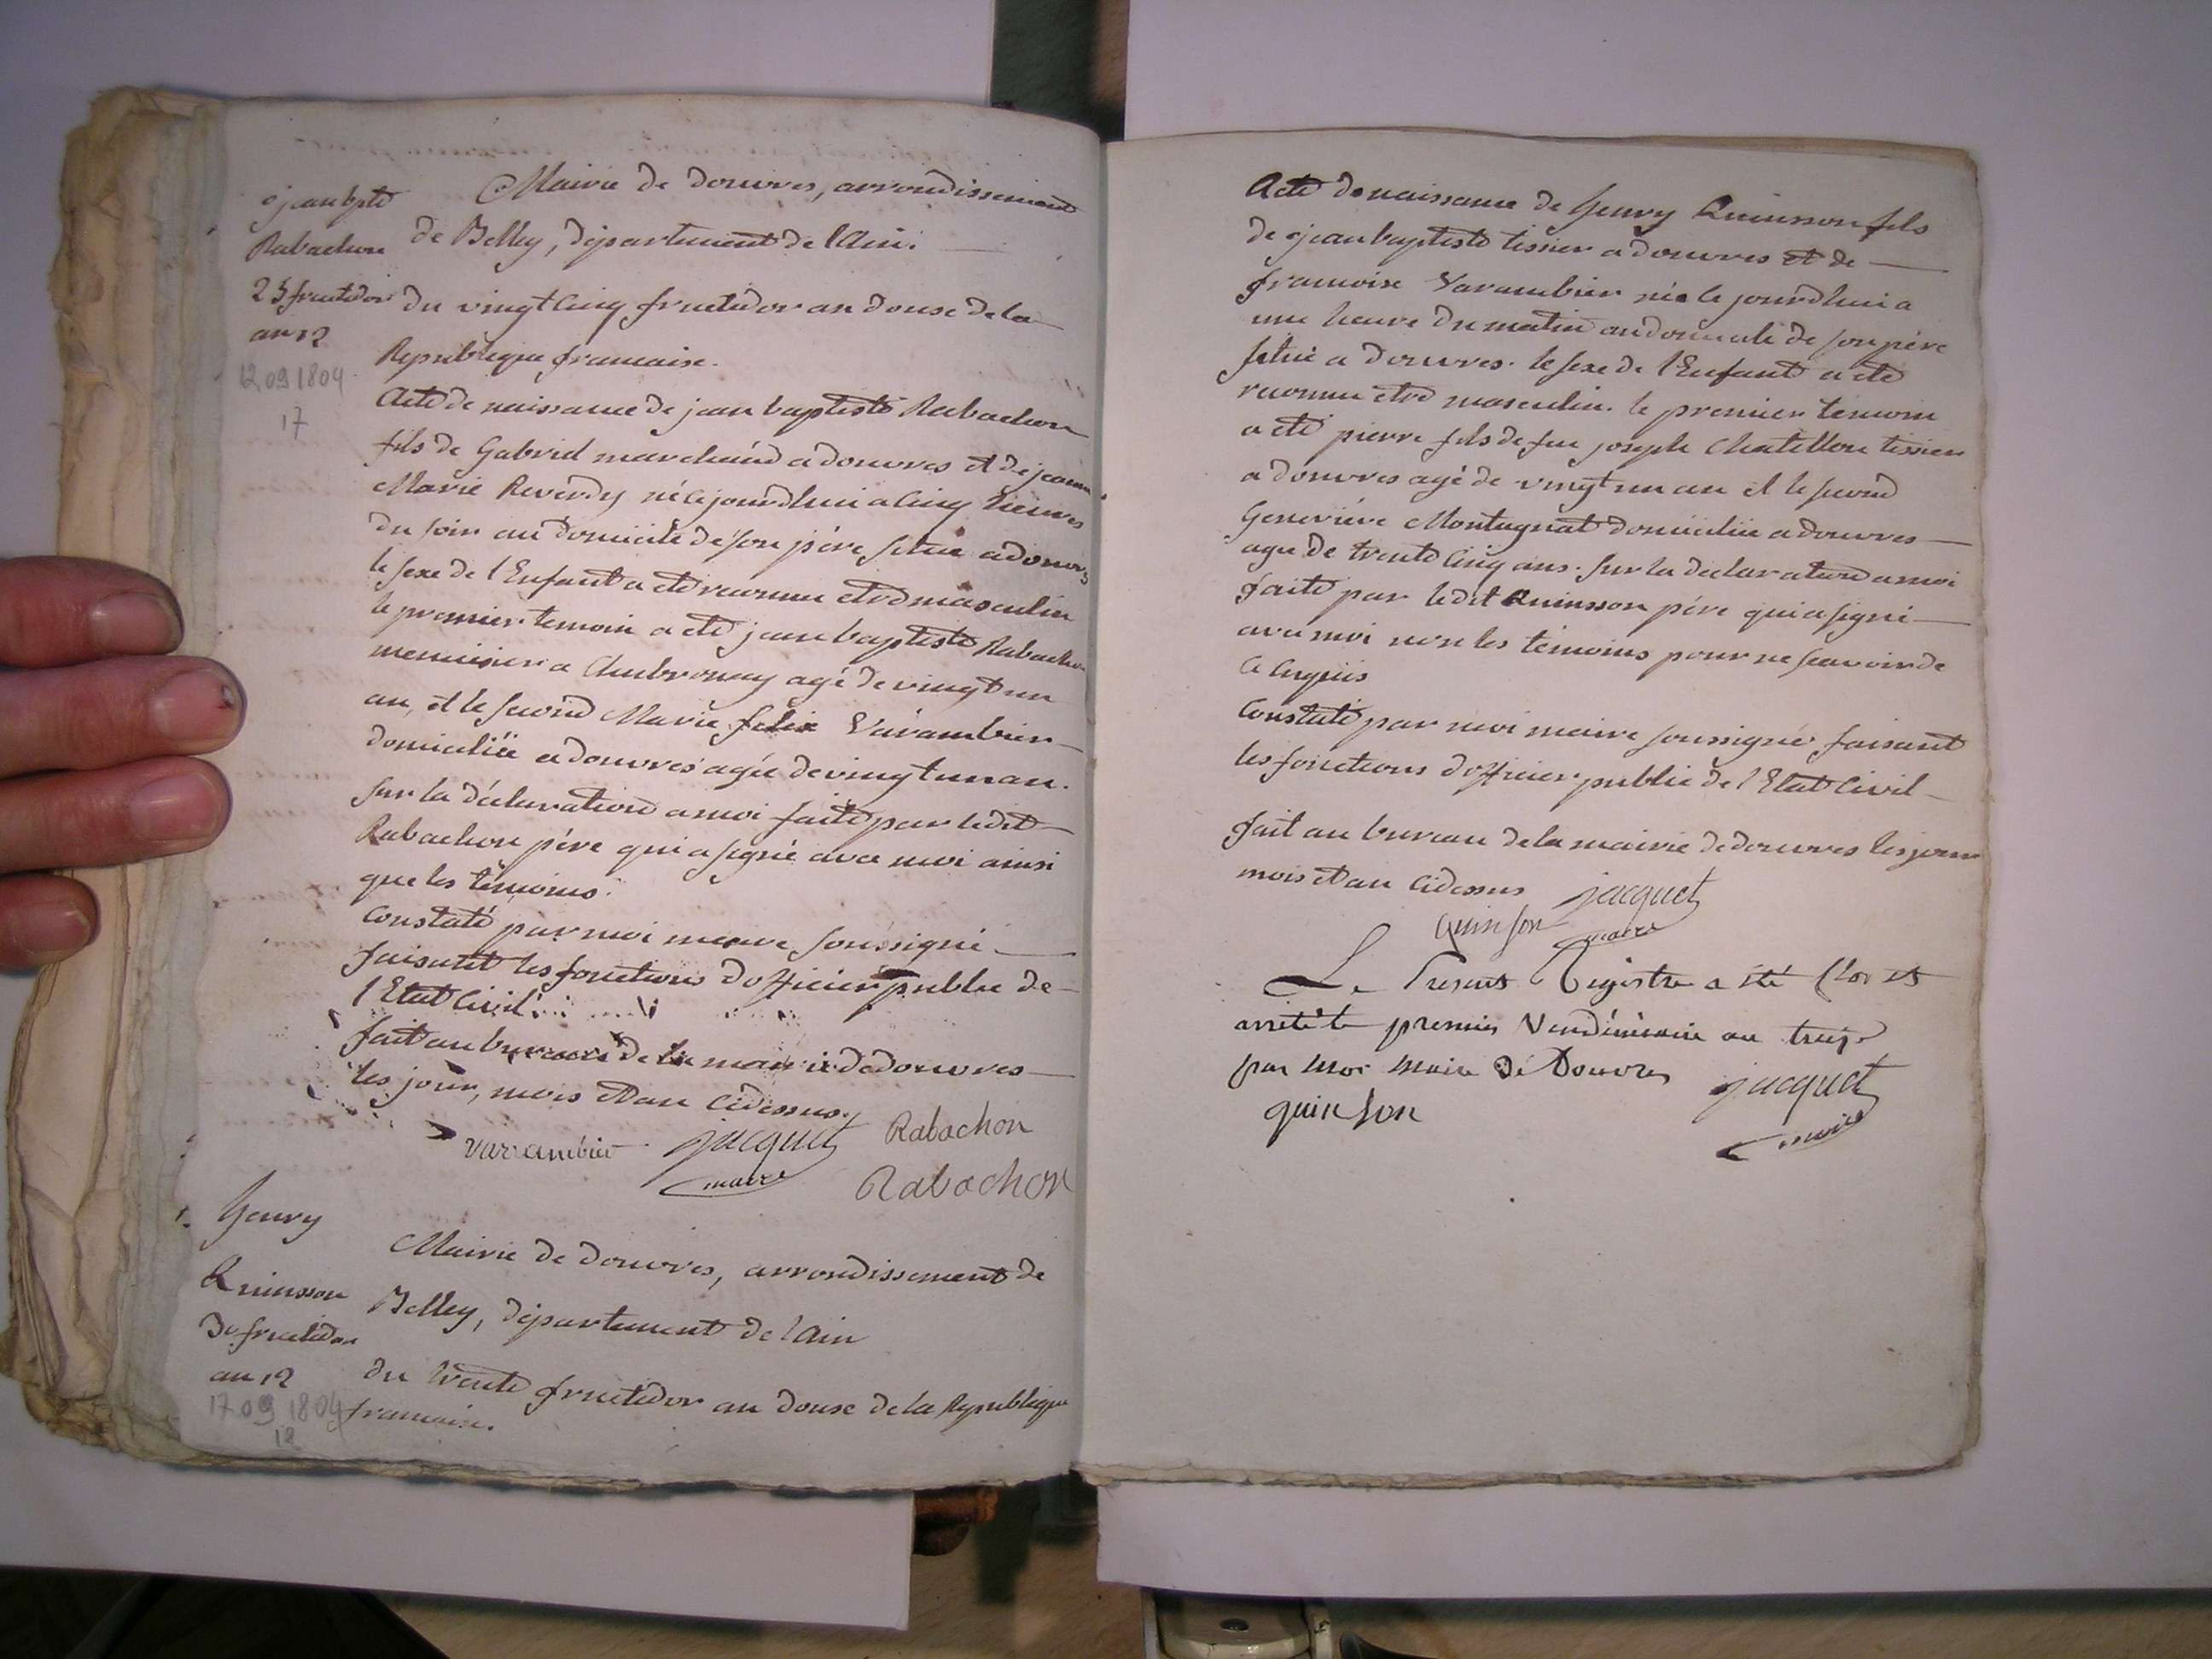 jean bpte
Rabachon
25 fructidor
an 12
12 09 1804
17
Mairie de douvres, arrondissement
de Belley, département de l'Ain.
du vingt cinq fructidor an douse de la
Republique francaise.
Acte de naissance de jean baptiste Rabachon
fils de Gabriel marchand a douvres et de jeanne
Marie Reverdy né cejourdhui a cinq heures
du soir au domicile de son père situé a douvres
le sexe de l'Enfant a eté reconnu etre masculin
le premier temoin a eté jean baptiste Rabachon
menuisier a Ambronay agé de vingt un
an, et le second Marie felix Varambier
domiciliée a douvres agée de vingt un an.
sur la déclaration a moi faite par ledit
Rabachon père qui a signé avec moi ainsi
que les témoins.
Constaté par moi maire soussigné
faisant les fonctions d'officier public de
l'Etat Civil.
fait au bureau de la mairie de douvres
les jour, mois et an cidessus.
varrambier jacquet Rabachon
maire Rabachon
henry
Quinsson
30 fructidor
an 12
17 09 1804
18
Mairie de douvres, arrondissement de
Belley, département de l'Ain
du trente fructidor an douse de la Republique
francaise.
Acte de naissance de henry Quinsson fils
de jean baptiste tissier a douvres et de
francoise Varambier née le jourdhui a
une heure du matin au domicile de son père
situé a douvres. le sexe de l'Enfant a eté
reconnu etre masculin. le premier temoin
a eté pierre fils de feu joseph Chatillon tissier
a douvres agé de vingt un an et le second
Geneviève Montagnat domiciliée a douvres
agée de trente cinq ans. sur la déclaration a moi
faite par ledit Quinsson père qui a signé
avec moi non les témoins pour ne scavoir de
ce enquis
Constaté par moi maire soussigné faisant
les fonctions d'officier public de l'Etat Civil
fait au bureau de la mairie de douvres les jour
mois et an cidessus jacquet
quinson maire
Le Present Registre a été Clos et
arreté le premier Vendémiaire an treize
par moi maire de Douvres jacquet
quinson maire